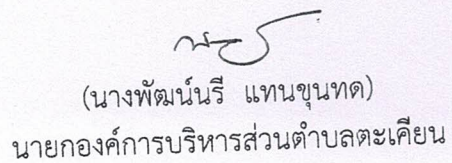 (นางพัฒน์นรี แทนขุนทด)
นายกองค์การบริหารส่วนตำบลตะเคียน